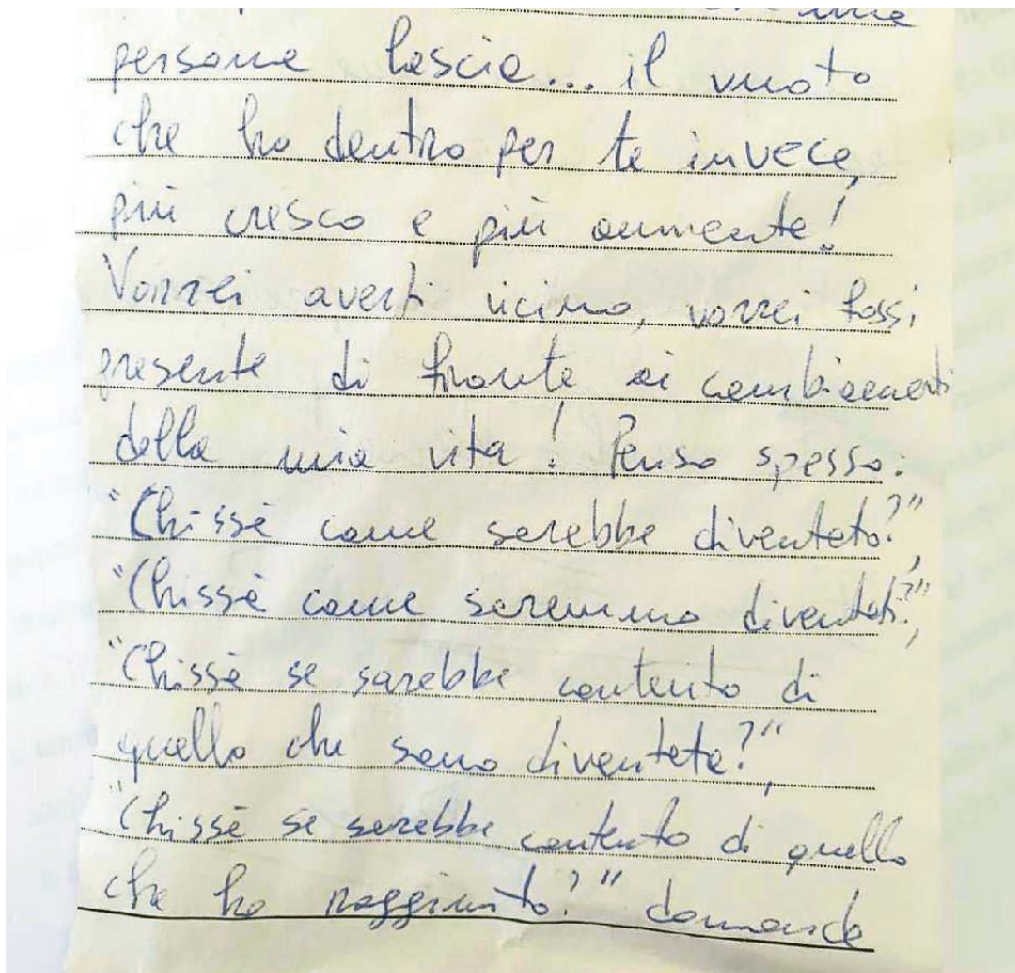 una
persona lascia... il vuoto
che ho dentro per te invece,
più cresco e più aumenta!
Vorrei averti vicino, vorrei fossi
presente di fronte ai cambiamenti
della mia vita! Penso spesso:
"Chissà come sarebbe diventato?",
"Chissà come saremmo diventati?",
"Chissà se sarebbe contento di
quello che sono diventata?",
"Chissà se sarebbe contento di quello
che ho raggiunto?" domande